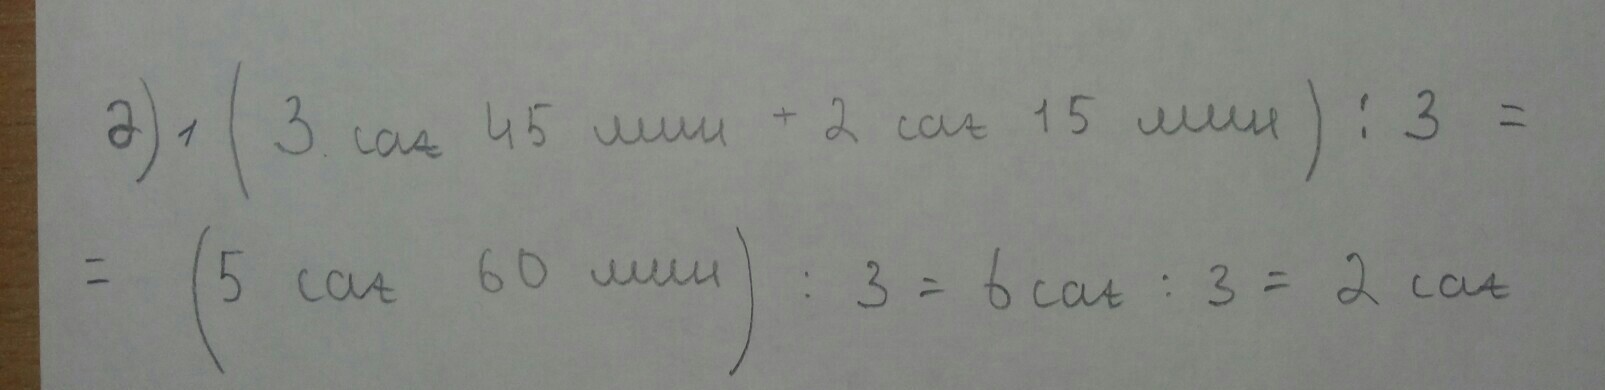 ә) 1 (3 сағ 45 мин + 2 сағ 15 мин) : 3 =
= (5 сағ 60 мин) : 3 = 6 сағ : 3 = 2 сағ